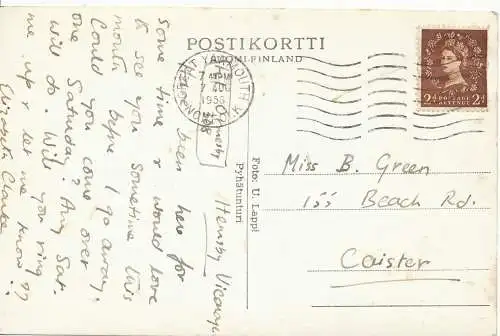 POSTIKORTTI
SUOMI-FINLAND
GT YARMOUTH
7 AUG
1956
NORFOLK
POSTAGE
REVENUE
2d 2d
Hemsby Vicarage
Some time & would love
to see you sometime this
month before I go away.
Could you come over
one Saturday? Any Sat.
will do. Will you ring
me up & let me know??
Elizabeth Clarke
Foto: U. Lappi
Pyhätunturi
Miss B. Green
155 Beach Rd.
Caister